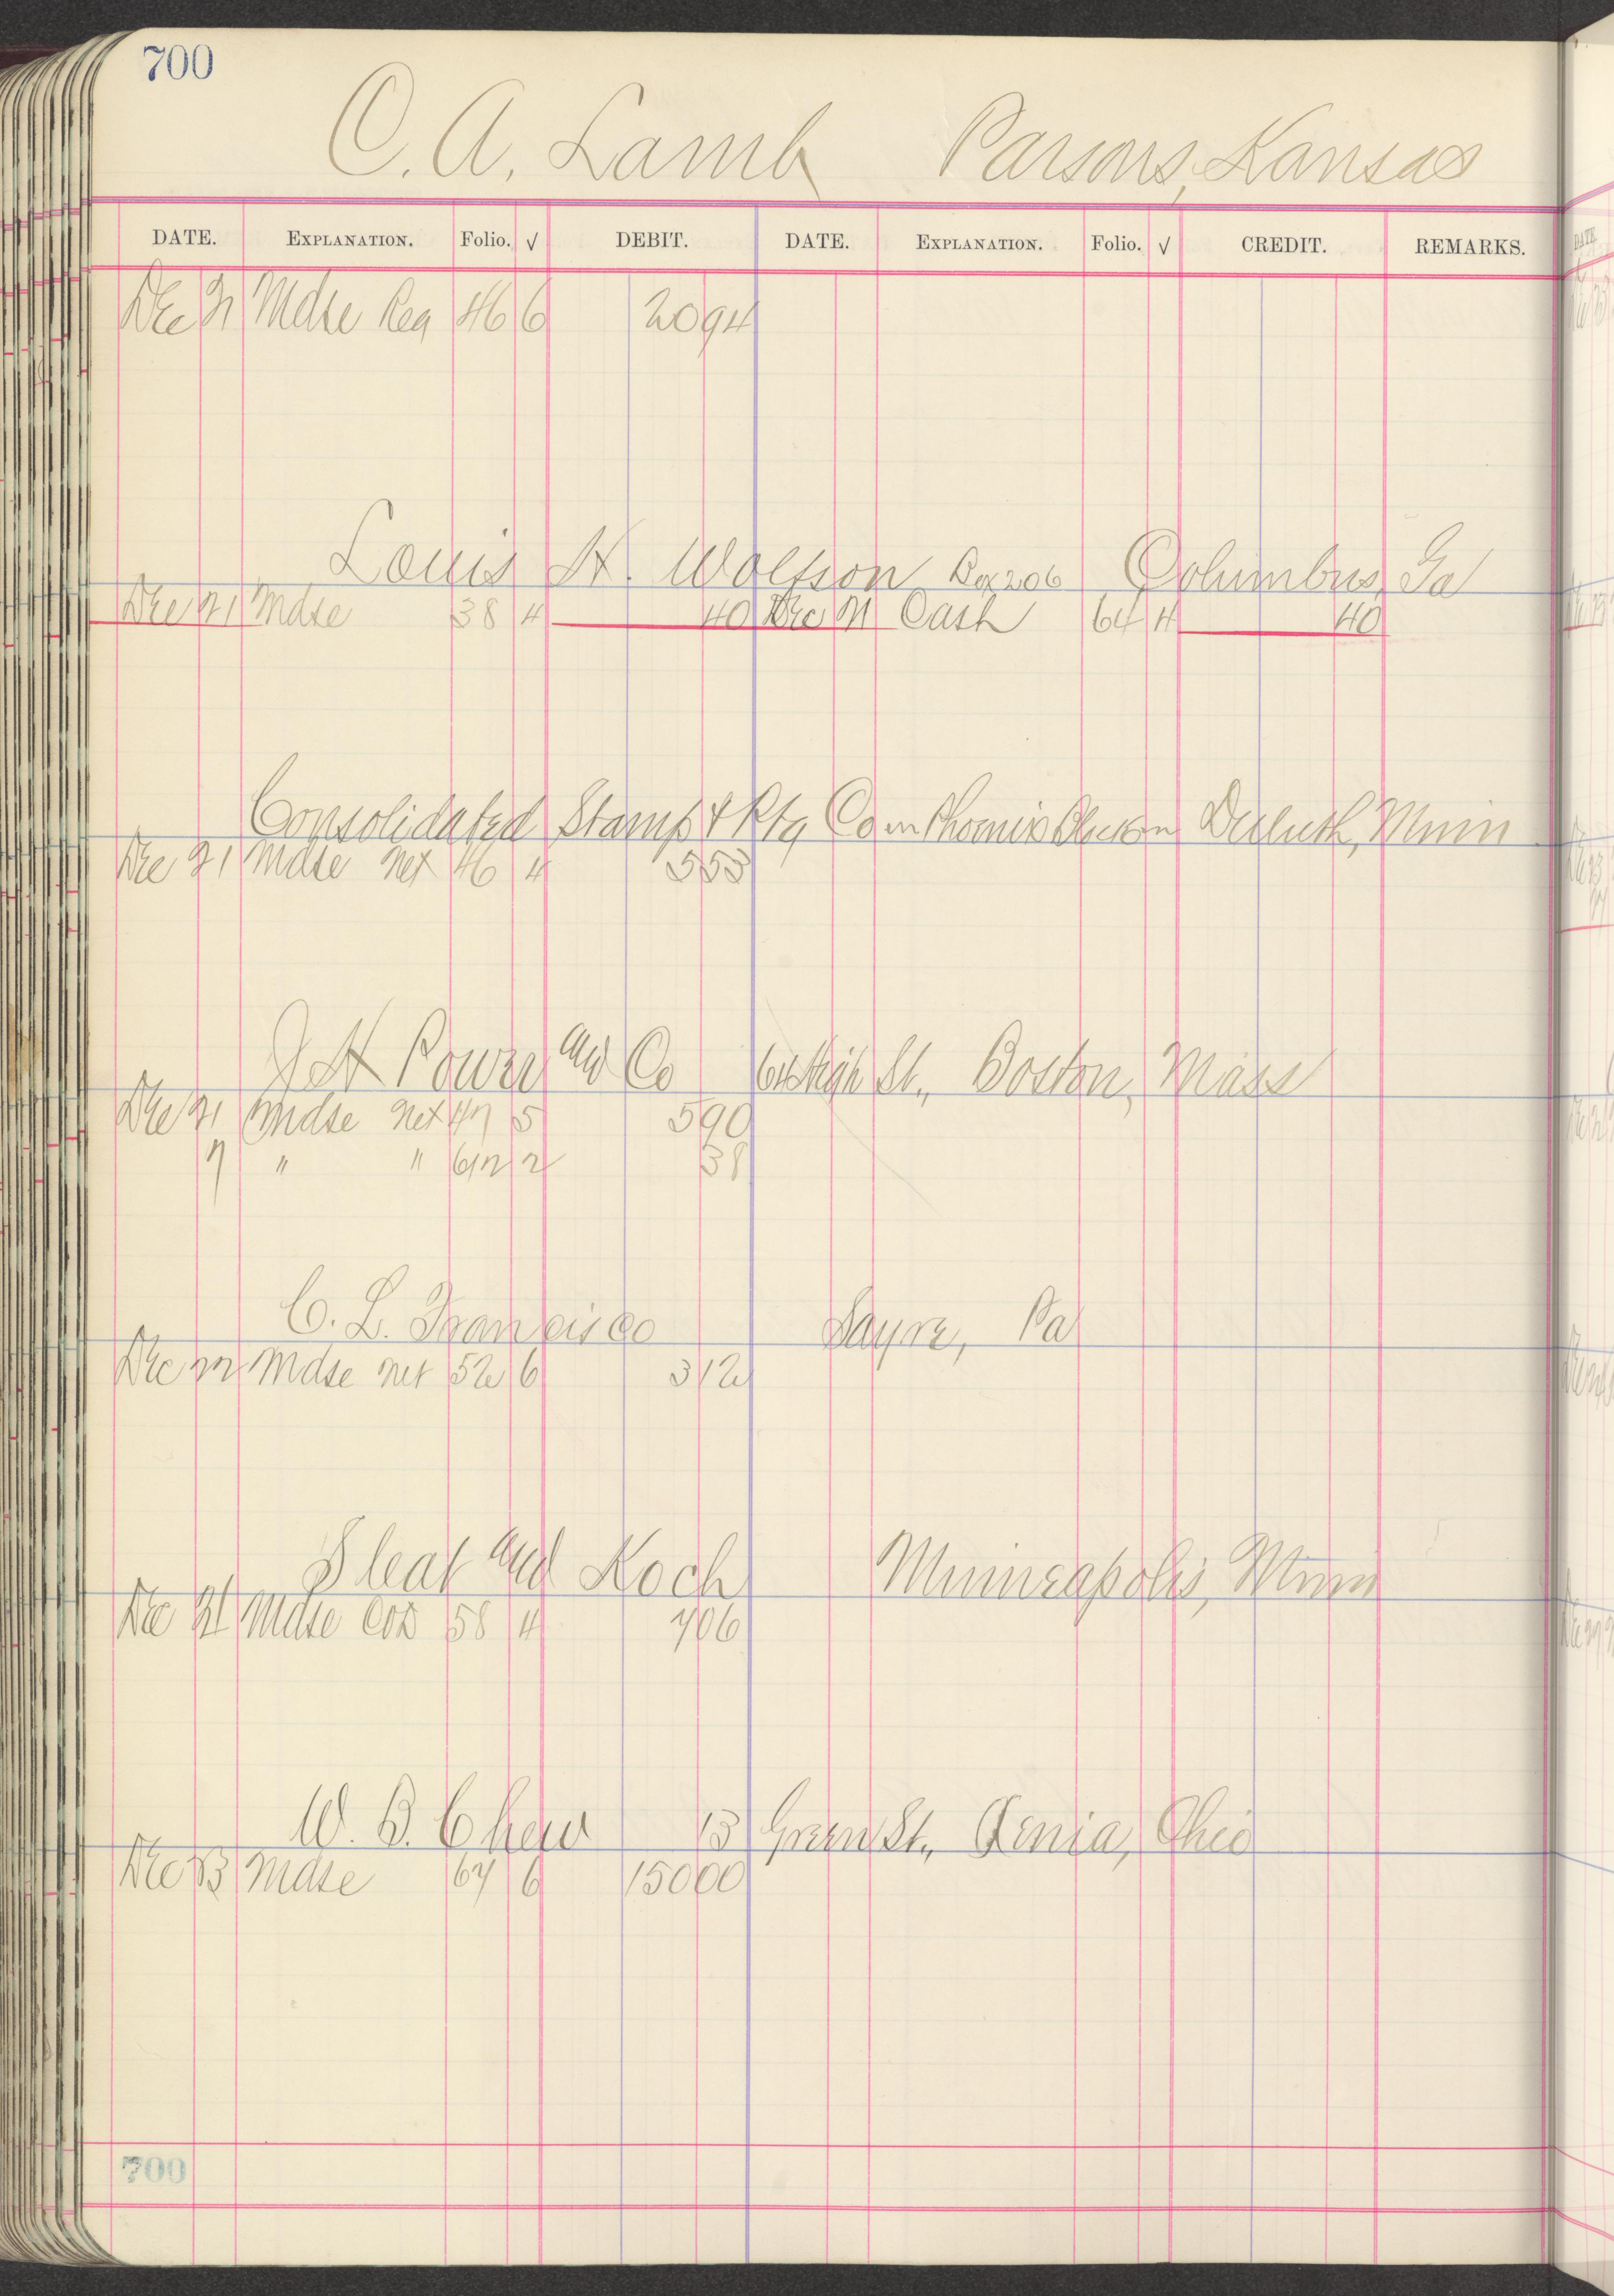 700
C. A. Lamb Parsons, Kansas
DATE. EXPLANATION. Folio. √ DEBIT. DATE. EXPLANATION. Folio. √ CREDIT. REMARKS.
Dec 21 Mdse Reg 46 6 20 94
Louis H. Wolfson Box 206 Columbus, Ga
Dec 21 Mdse 38 4 40 Dec 21 Cash 64 4 40
Consolidated Stamp & Ptg Co Phoenix Duluth, Minn
Dec 21 Mdse net 46 4 5 53
J H Power and Co 64 High St., Boston, Mass
Dec 21 Mdse net 47 5 5 90
" " 2 38
C. L. Francisco Sayre, Pa
Dec 22 Mdse net 52 6 3 12
Sleat and Koch Minneapolis, Minn
Dec Mdse COD 58 4 7 06
W. B. Chew 13 Green St., Xenia, Ohio
Dec 23 Mdse 67 6 150 00
700